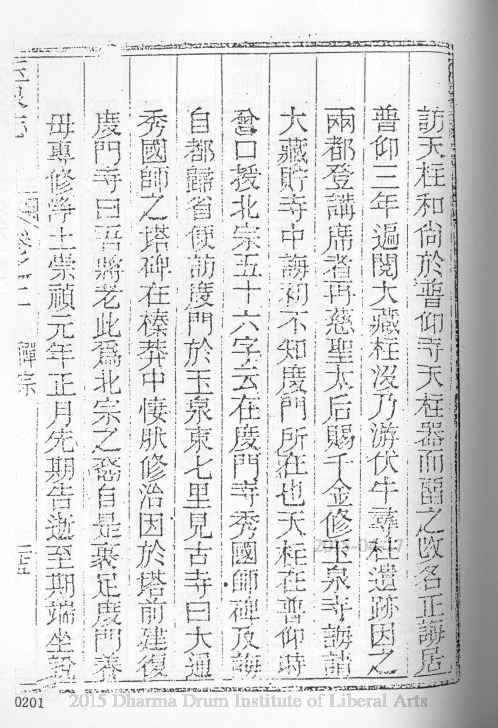 訪天柱和尚於普仰寺天柱器而畱之改名正誨居
普仰三年遍閱大藏柱沒乃游伏牛尋柱遺跡因之
兩都登講席者再慈聖太后賜千金修玉泉寺誨請
大藏貯寺中誨初不知度門所在也天柱在普仰時
會口授北宗五十六字云在度門寺秀國師碑及誨
自都歸省便訪度門於玉泉東七里見古寺曰大通
秀國師之塔碑在榛莽中悽肰修治因於塔前建復
度門寺曰吾將老此爲北宗之裔自是裹足度門養
母專修淨土崇禎元年正月先期告逝至期端坐說
玉泉志 卷之二 禪宗 二五
0201
2015 Dharma Drum Institute of Liberal Arts